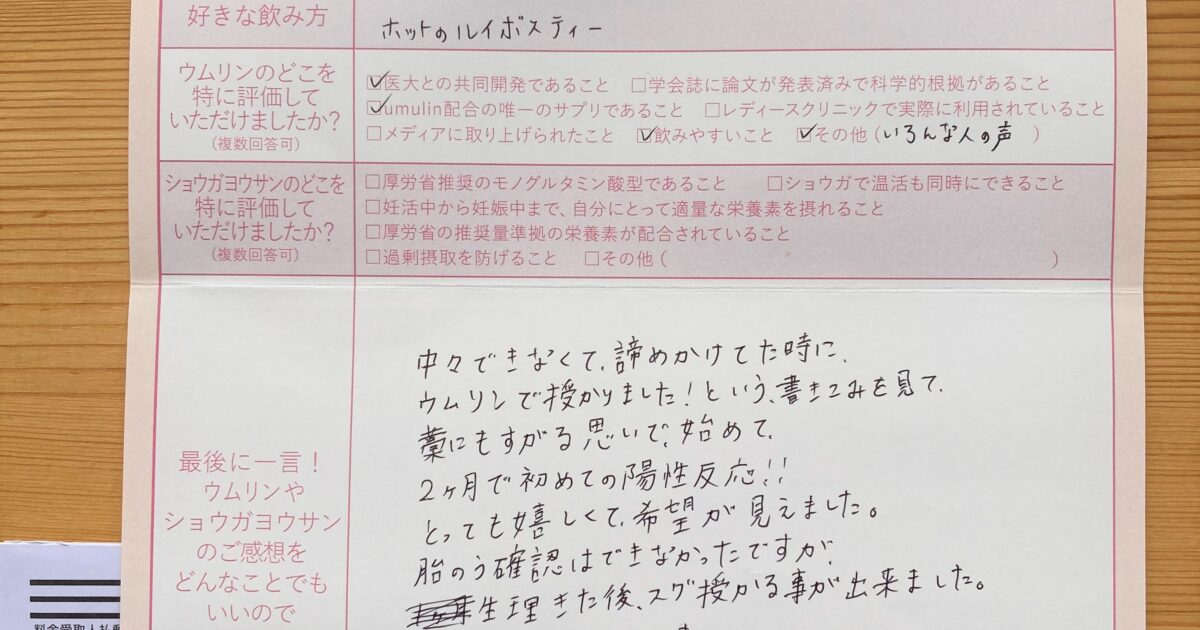 好きな飲み方
ホットのルイボスティー
ウムリンのどこを
特に評価して
いただけましたか?
(複数回答可)
☑医大との共同開発であること □学会誌に論文が発表済みで科学的根拠があること
☑umulin配合の唯一のサプリであること □レディースクリニックで実際に利用されていること
□メディアに取り上げられたこと ☑飲みやすいこと ☑その他(いろんな人の声 )
ショウガヨウサンのどこを
特に評価して
いただけましたか?
(複数回答可)
□厚労省推奨のモノグルタミン酸型であること □ショウガで温活も同時にできること
□妊活中から妊娠中まで、自分にとって適量な栄養素を摂れること
□厚労省の推奨量準拠の栄養素が配合されていること
□過剰摂取を防げること □その他( )
最後に一言!
ウムリンや
ショウガヨウサン
のご感想を
どんなことでも
いいので
中々できなくて、諦めかけてた時に、
ウムリンで授かりました!という、書きこみを見て、
藁にもすがる思いで、始めて、
2ヶ月で初めての陽性反応!!
とっても嬉しくて、希望が見えました。
胎のう確認はできなかったですが、
生理きた後、スグ授かる事が出来ました。